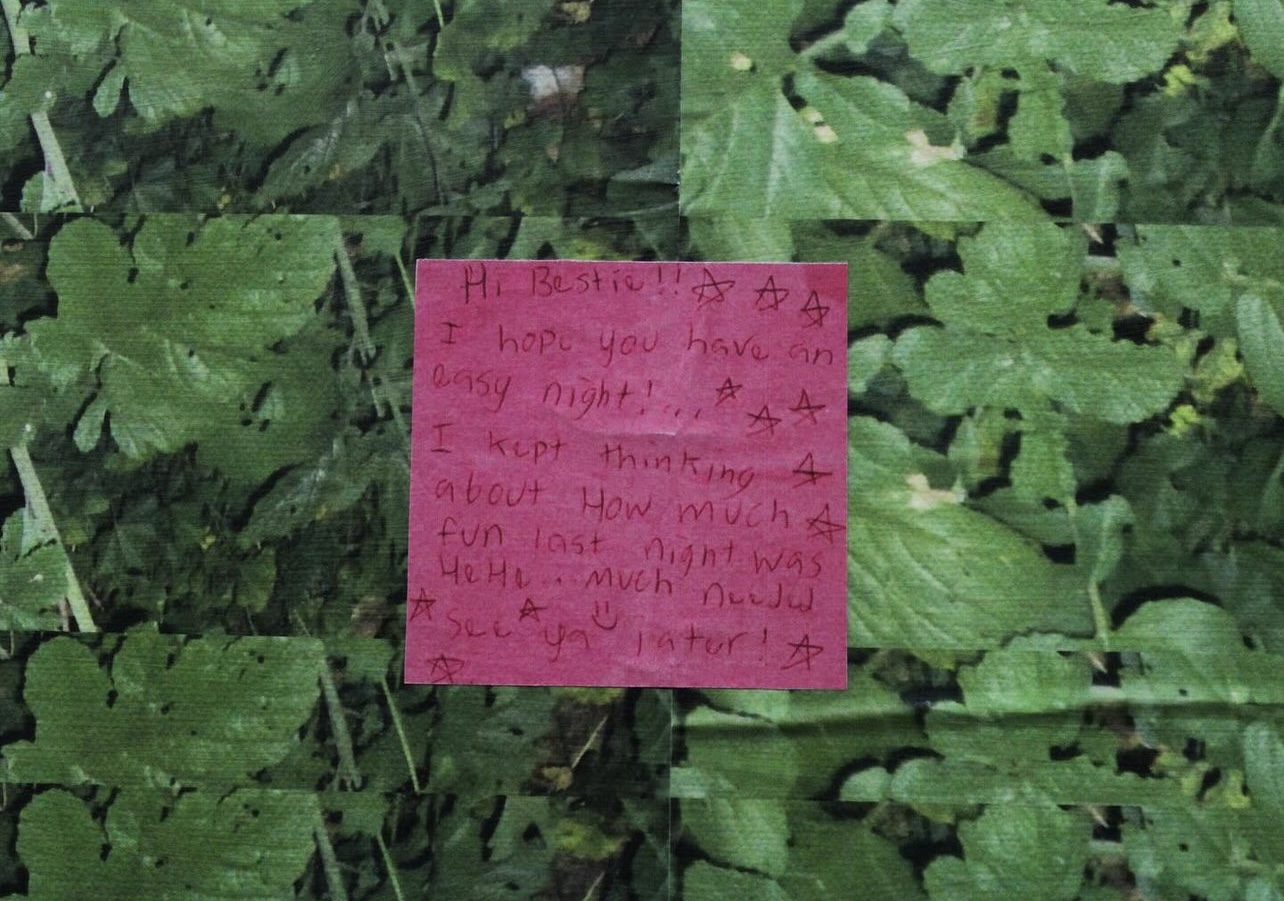 Hi Bestie!!
I hope you have an
easy night!...
I kept thinking
about How much
fun last night was
HeHe... much needed
see ya later!